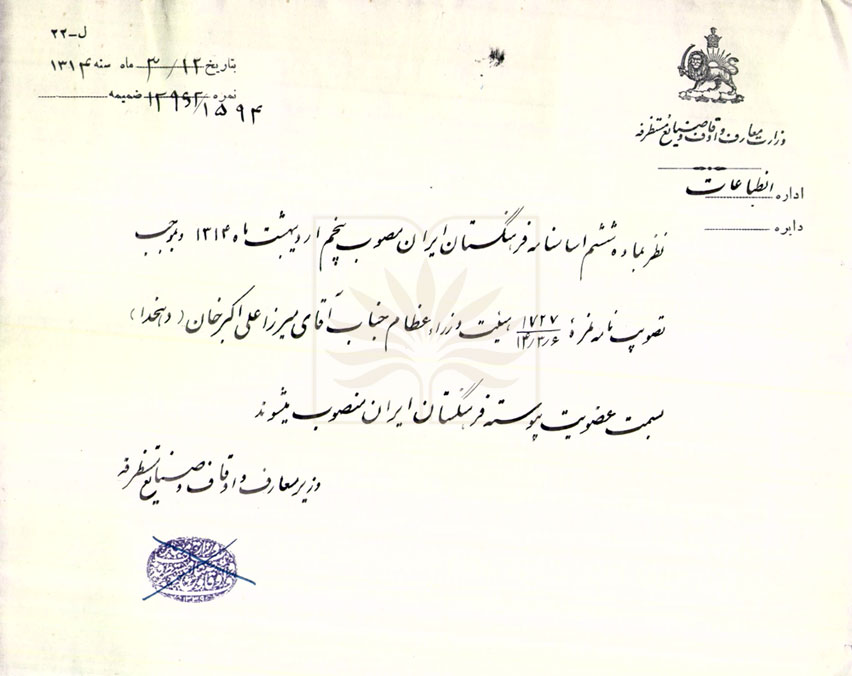 ل-۲۲
بتاریخ ۱۲/۳ ماه سنه ۱۳۱۴
نمره ۱۲۹۶۲/۱۵۹۴ ضمیمه
وزارت معارف و اوقاف و صنایع مستظرفه
اداره انطباعات
دایره
نظر بماده ششم اساسنامه فرهنگستان ایران مصوب پنجم اردیبهشت ماه ۱۳۱۴ و بموجب
تصویب نامه نمرهٔ ۱۷۲۷ ۱۴/۳/۶ هیئت وزراء عظام جناب آقای میرزا علی اکبر خان (دهخدا)
بسمت عضویت پیوسته فرهنگستان ایران منصوب میشوند
وزیر معارف و اوقاف و صنایع مستظرفه